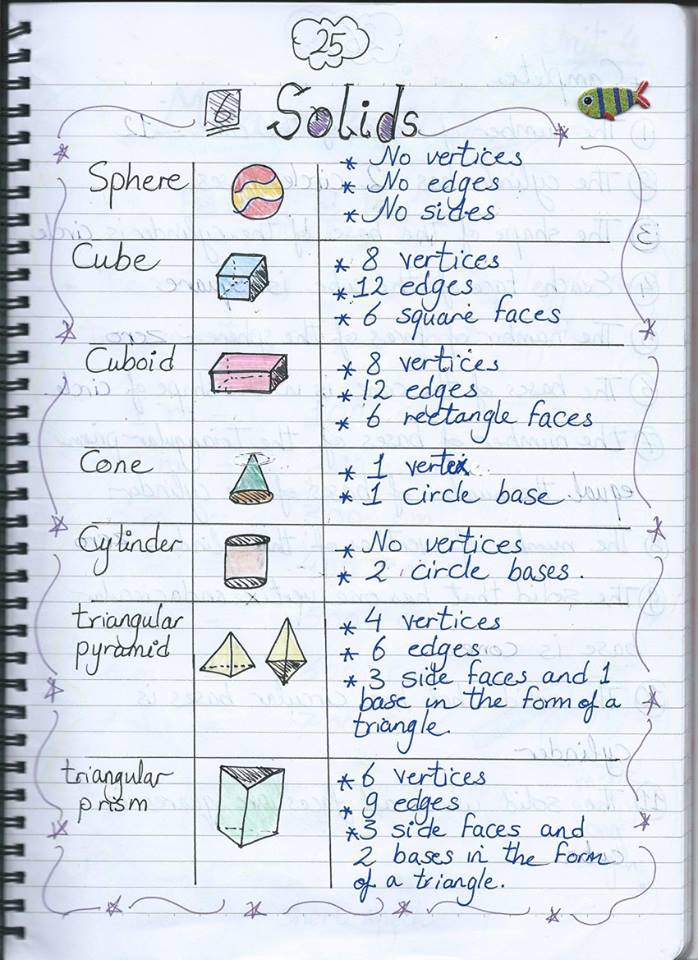 25
6 Solids
Sphere
* No vertices
* No edges
* No sides
Cube
* 8 vertices
* 12 edges
* 6 square faces
Cuboid
* 8 vertices
* 12 edges
* 6 rectangle faces
Cone
* 1 vertex
* 1 circle base
Cylinder
* No vertices
* 2 circle bases.
triangular
pyramid
* 4 vertices
* 6 edges
* 3 side faces and 1
base in the form of a
triangle.
triangular
prism
* 6 vertices
* 9 edges
* 3 side faces and
2 bases in the form
of a triangle.